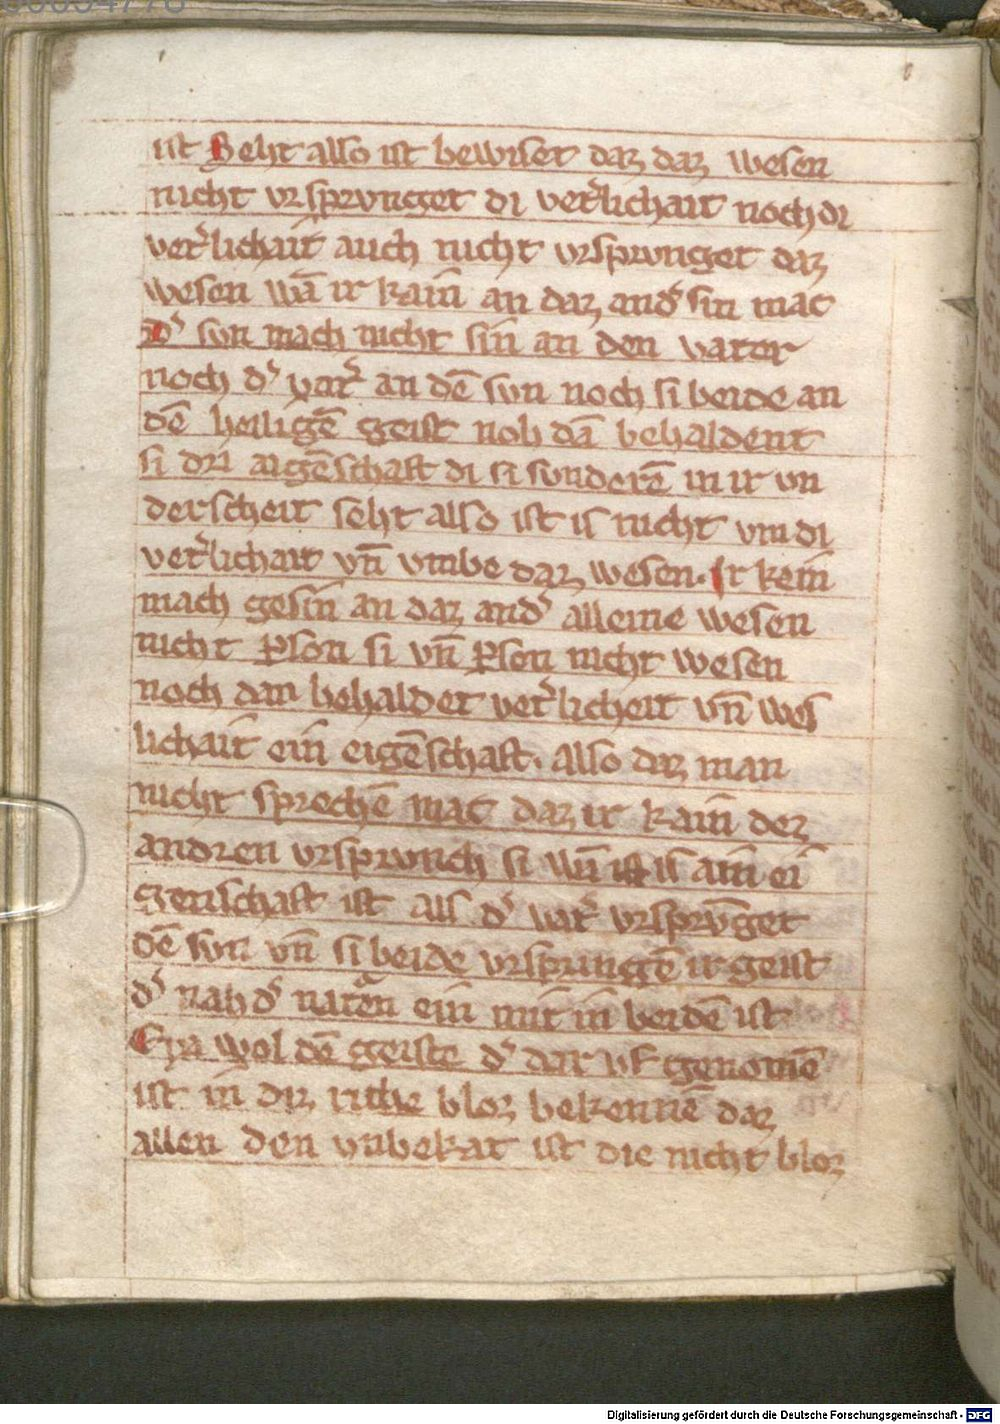 ist Seht also ist bewiset daz daz wesen
nicht vrsprunget di vet'lichait noch di
vet'lichait auch nicht vrsprunget daz
wesen wā ir kain an daz and' sin mac
D' svn mach nicht sin an den vater
noch d' vat' an dē svn noch si beide an
dē heiligē geist noh dā behaldent
si dri aigēschaft di si sunderē in ir vn
derscheit seht also ist is nicht vm di
vet'lichait vn̄ vmbe daz wesen. Ir kein
mach gesin an daz and' alleine wesen
nicht ꝑson si vn̄ ꝑson nicht wesen
noch dan behaldet vet'licheit vn̄ wes
lichait ein eigēschaft. Also daz man
nicht sprechē mac daz ir kain dez
andren vrsprunch si wn̄ ist is ain ei
genschaft ist als d' vat' vrsprv̄get
dē svn vn̄ si beide vrspringē ir geist
d' nah d' naturen ein mit in beidē ist
Eya wol dē geiste d' dar vf genomē
ist in diz riche bloz bekennē daz
allen den vnbekāt ist die nicht bloz
Digitalisierung gefördert durch die Deutsche Forschungsgemeinschaft - DFG